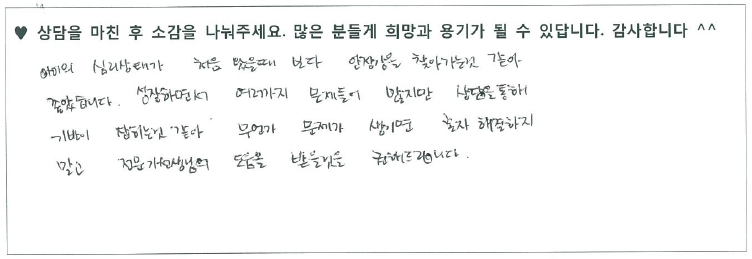 ♥ 상담을 마친 후 소감을 나눠주세요. 많은 분들게 희망과 용기가 될 수 있답니다. 감사합니다 ^^
아이의 심리상태가 처음 왔을때 보다 안정감을 찾아가는것 같아
좋았습니다. 성장하면서 여러가지 문제들이 많지만 상담을통해
기반이 잡히는것 같아 무언가 문제가 생기면 혼자 해결하지
말고 전문가선생님의 도움을 받을것을 권해드립니다.